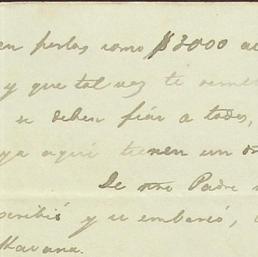 en perlas como $3000 a
y que tal vez te
se deben fiar a todos,
ya aqui tienen un
De ntro Padre
scribió y se embarcó,
Havana.